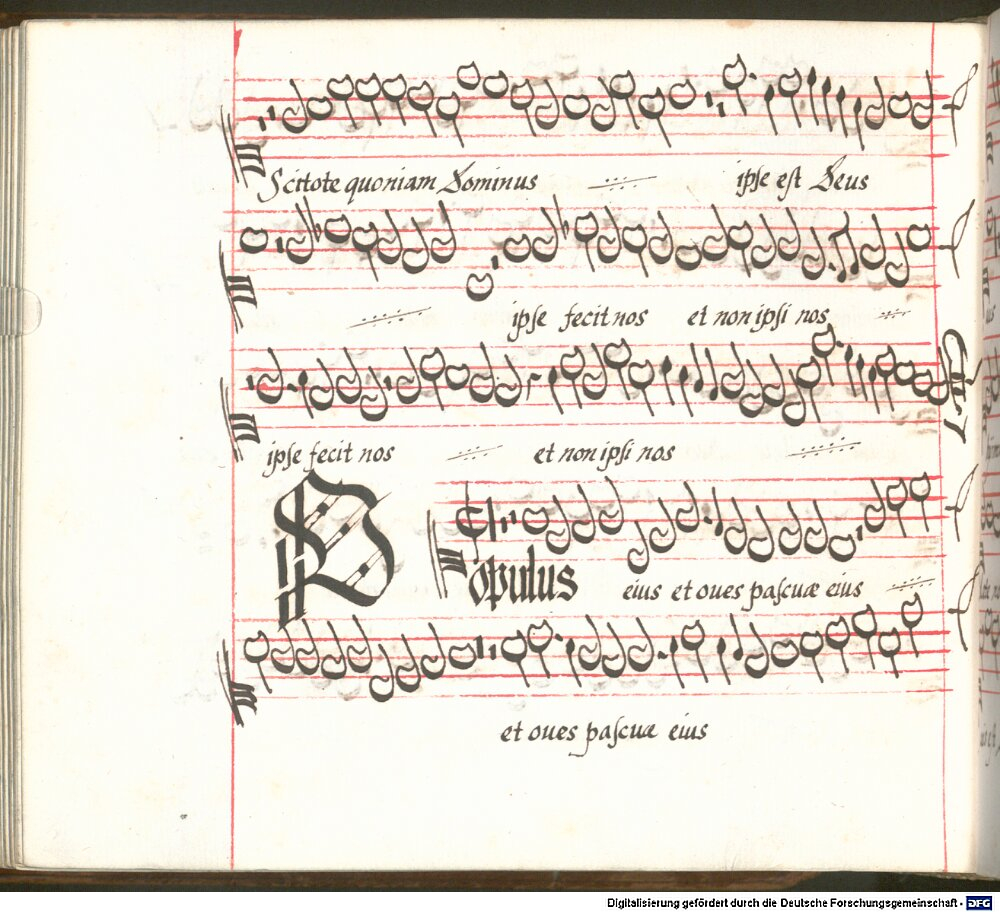 Scitote quoniam Dominus ipſe eſt Deus
ipſe fecit nos et non ipſi nos
ipſe fecit nos et non ipſi nos
Populus eius et oues paſcuæ eius
et oues paſcuæ eius
Digitalisierung gefördert durch die Deutsche Forschungsgemeinschaft - DFG